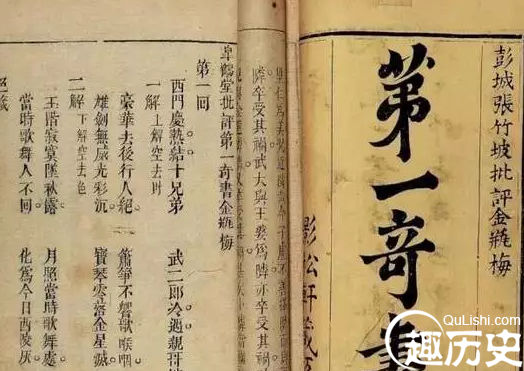 彭城張竹坡批評金瓶梅
第一奇書
隣卒受其禍武大與王婆為隣亦卒受其禍
皐鶴堂批評第一奇書金瓶梅
第一回
西門慶熱結十兄弟 武二郎冷遇親哥
一解 上解空去財
豪華去後行人絕 簫箏不響歌喉咽
雄劍無威光彩沉 寶琴零落金星滅
二解 下解空去色
玉階寂寞墜秋露 月照當時歌舞處
當時歌舞人不回 化爲今日西陵灰
QuLishi.com
趣历史